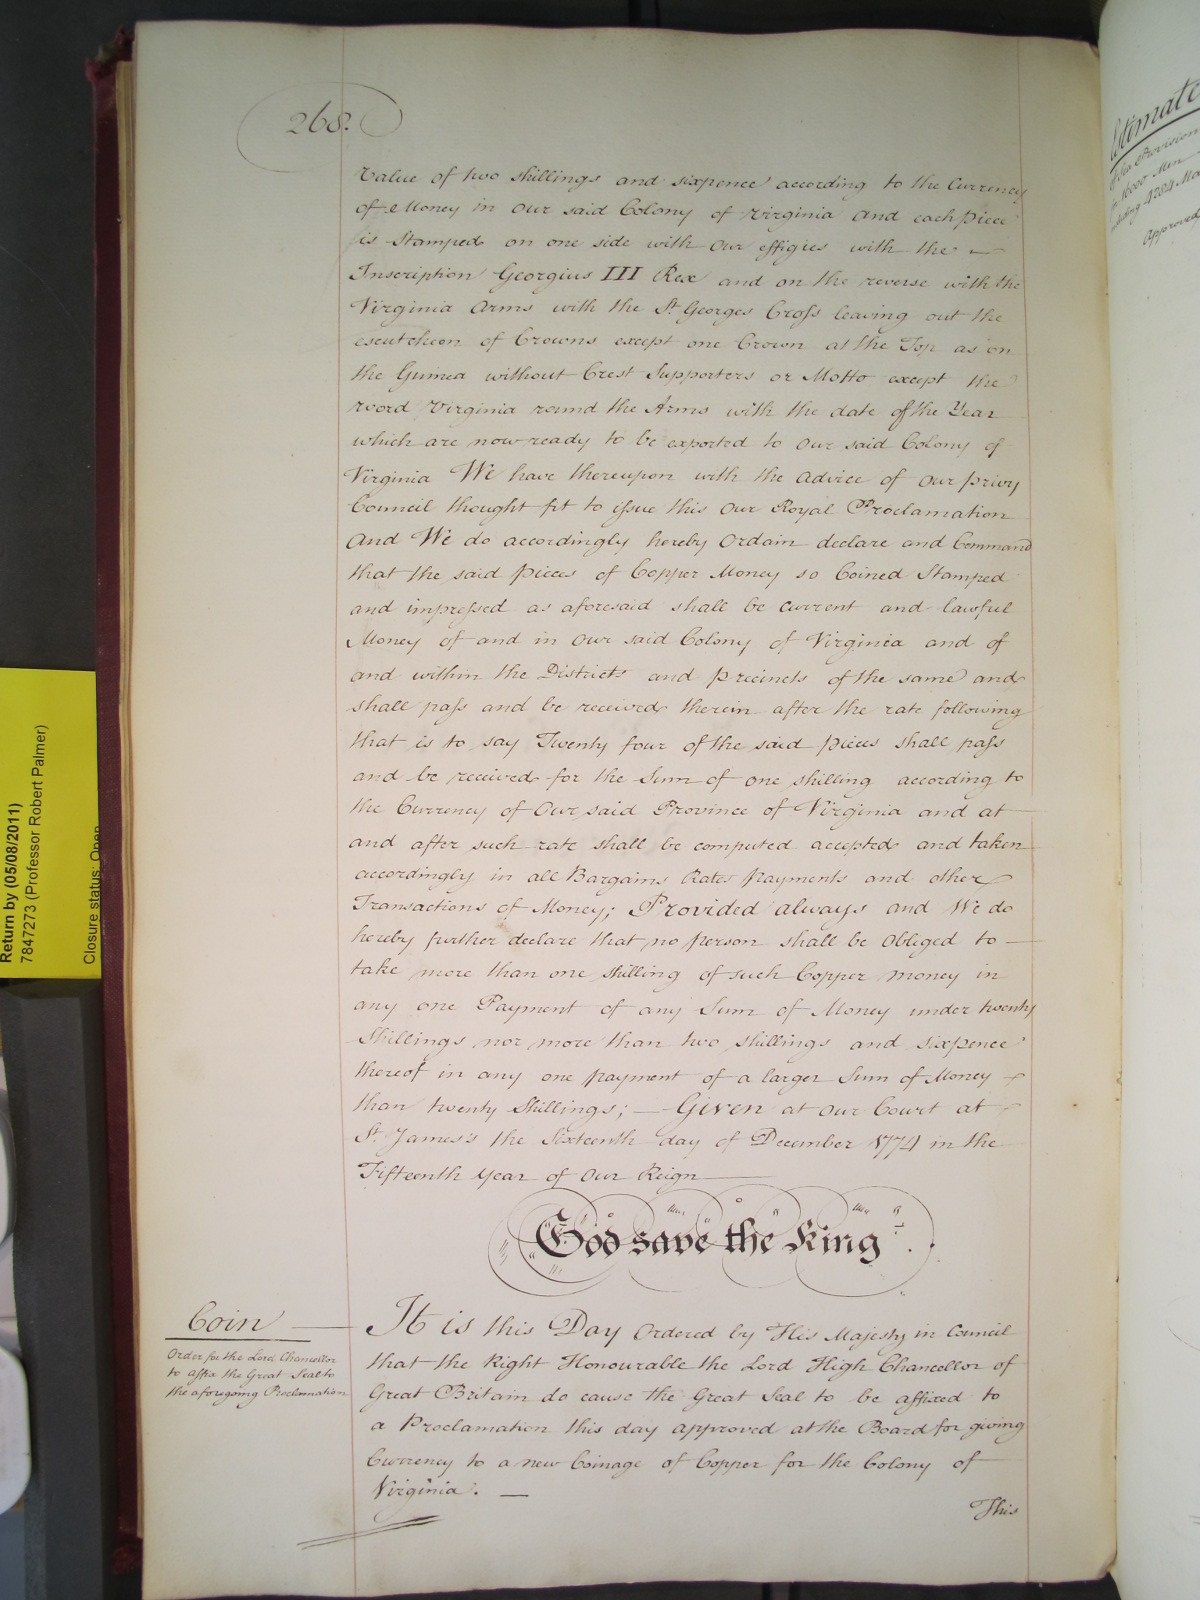 268.
Value of two shillings and sixpence according to the Currency
of Money in Our said Colony of Virginia and each piece
is Stamped on one side with Our effigies with the
Inscription Georgius III Rex and on the reverse with the
Virginia Arms with the St. Georges Cross leaving out the
escutcheon of Crowns except one Crown at the Top as on
the Guinea without Crest Supporters or Motto except the
word Virginia round the Arms with the date of the Year
which are now ready to be exported to Our said Colony of
Virginia We have thereupon with the Advice of Our privy
Council thought fit to issue this Our Royal Proclamation
And We do accordingly hereby Ordain declare and Command
that the said pieces of Copper Money so Coined Stamped
and impressed as aforesaid shall be current and lawful
Money of and in Our said Colony of Virginia and of
and within the Districts and precincts of the same and
shall pass and be received therein after the rate following
that is to say Twenty four of the said pieces shall pass
and be received for the Sum of one shilling according to
the Currency of Our said Province of Virginia and at
and after such rate shall be computed accepted and taken
accordingly in all Bargains Rates payments and other
Transactions of Money; Provided always and We do
hereby further declare that no person shall be Obliged to
take more than one shilling of such Copper money in
any one Payment of any Sum of Money under twenty
Shillings nor more than two shillings and sixpence
thereof in any one payment of a larger Sum of Money
than twenty Shillings; — Given at our Court at
St. James's the Sixteenth day of December 1774 in the
Fifteenth Year of Our Reign
God save the King.
Coin
Order for the Lord Chancellor
to affix the Great Seal to
the aforegoing Proclamation
It is this Day Ordered by His Majesty in Council
that the Right Honourable the Lord High Chancellor of
Great Britain do cause the Great Seal to be affixed to
a Proclamation this day approved at the Board for giving
Currency to a new Coinage of Copper for the Colony of
Virginia. —
This
Return by (05/08/2011)
7847273 (Professor Robert Palmer)
Closure status: Open
Estimate
of Sea Provisions
for 16000 Men
including 4284 Ma
Approved